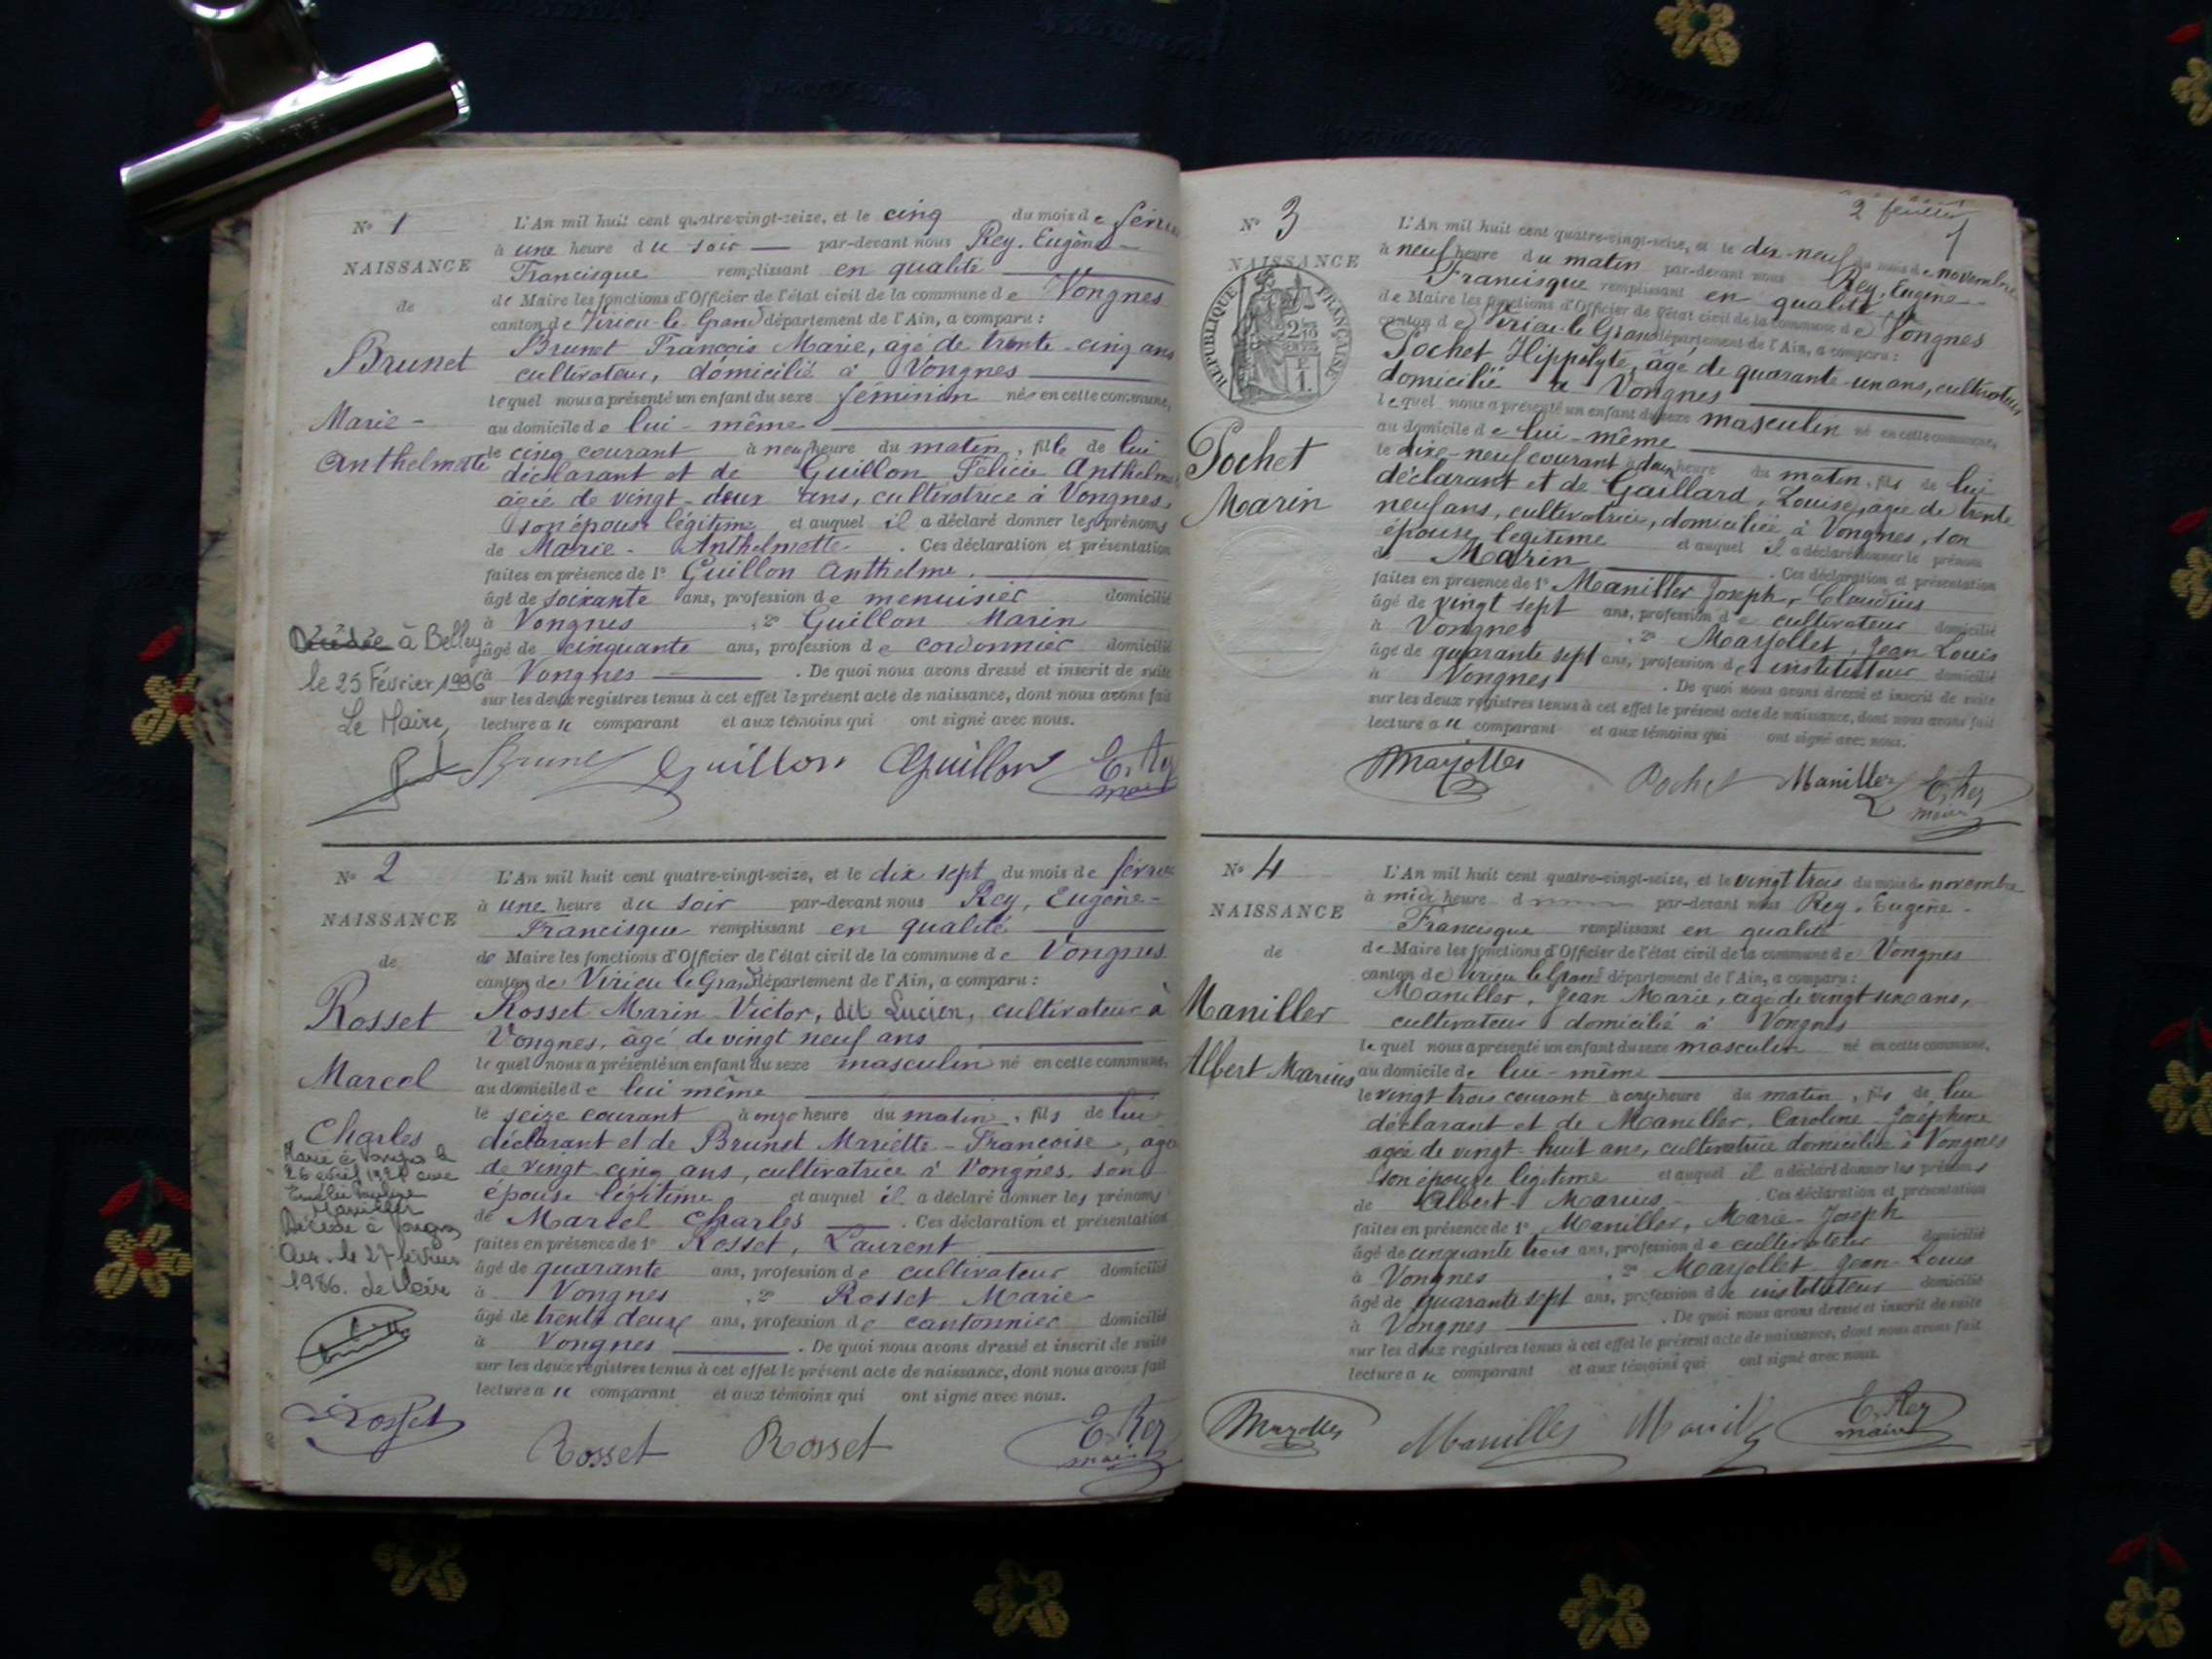 N° 1
NAISSANCE
de
Brunet
Marie-
Anthelmette
L'An mil huit cent quatre-vingt-seize, et le cinq du mois de février
à une heure du soir par-devant nous Rey, Eugène-
Francisque remplissant en qualité
de Maire les fonctions d'Officier de l'état civil de la commune de Vongnes
canton de Virieu-le-Grand département de l'Ain, a comparu :
Brunet François Marie, âgé de trente-cinq ans
cultivateur, domicilié à Vongnes
lequel nous a présenté un enfant du sexe féminin née en cette commune,
au domicile de lui-même
le cinq courant à neuf heure du matin, fille de lui
déclarant et de Guillon Félicie Anthelme
âgée de vingt-deux ans, cultivatrice à Vongnes,
son épouse légitime et auquel il a déclaré donner les prénoms
de Marie-Anthelmette. Ces déclaration et présentation
faites en présence de 1° Guillon Anthelme,
âgé de soixante ans, profession de menuisier domicilié
à Vongnes, 2° Guillon Marin
âgé de cinquante ans, profession de cordonnier domicilié
à Vongnes. De quoi nous avons dressé et inscrit de suite
sur les deux registres tenus à cet effet le présent acte de naissance, dont nous avons fait
lecture au comparant et aux témoins qui ont signé avec nous.
Décédée à Belley
le 25 Février 1996
Le Maire,
Brunet Guillon AGuillon E. Rey
maire
N° 2
NAISSANCE
de
Rosset
Marcel
Charles
L'An mil huit cent quatre-vingt-seize, et le dix sept du mois de février
à une heure du soir par-devant nous Rey, Eugène-
Francisque remplissant en qualité
de Maire les fonctions d'Officier de l'état civil de la commune de Vongnes
canton de Virieu le Grand département de l'Ain, a comparu :
Rosset Marin Victor, dit Lucien, cultivateur à
Vongnes, âgé de vingt neuf ans
lequel nous a présenté un enfant du sexe masculin né en cette commune,
au domicile de lui même
le seize courant à onze heure du matin, fils de lui
déclarant et de Brunet Mariette-Françoise, âgée
de vingt cinq ans, cultivatrice à Vongnes, son
épouse légitime et auquel il a déclaré donner les prénoms
de Marcel Charles. Ces déclaration et présentation
faites en présence de 1° Rosset, Laurent
âgé de quarante ans, profession de cultivateur domicilié
à Vongnes, 2° Rosset Marie
âgé de trente deux ans, profession de cantonnier domicilié
à Vongnes. De quoi nous avons dressé et inscrit de suite
sur les deux registres tenus à cet effet le présent acte de naissance, dont nous avons fait
lecture au comparant et aux témoins qui ont signé avec nous.
Marié à Vongnes le
26 avril avec
Maniller
Décédé à Vongnes
Ain le 27 février
1986. Le Maire
Rosset
Rosset Rosset E. Rey
maire
2e feuillet
1
N° 3
NAISSANCE
RÉPUBLIQUE FRANÇAISE
Pochet
Marin
L'An mil huit cent quatre-vingt-seize, et le dix-neuf du mois de novembre
à neuf heure du matin par-devant nous Rey, Eugène
Francisque remplissant en qualité
de Maire les fonctions d'Officier de l'état civil de la commune de Vongnes
canton de Virieu-le-Grand département de l'Ain, a comparu :
Pochet Hippolyte, âgé de quarante-un ans, cultivateur
domicilié à Vongnes
lequel nous a présenté un enfant du sexe masculin né en cette commune,
au domicile de lui-même
le dix-neuf courant à deux heure du matin, fils de lui
déclarant et de Gaillard, Louise, âgée de trente
neuf ans, cultivatrice, domiciliée à Vongnes, son
épouse légitime et auquel il a déclaré donner le prénom
de Marin. Ces déclaration et présentation
faites en présence de 1° Maniller Joseph, Claudius
âgé de vingt sept ans, profession de cultivateur domicilié
à Vongnes, 2° Marjollet, Jean Louis
âgé de quarante sept ans, profession de instituteur domicilié
à Vongnes. De quoi nous avons dressé et inscrit de suite
sur les deux registres tenus à cet effet le présent acte de naissance, dont nous avons fait
lecture au comparant et aux témoins qui ont signé avec nous.
Marjollet Pochet Maniller E. Rey
maire
N° 4
NAISSANCE
de
Maniller
Albert Marius
L'An mil huit cent quatre-vingt-seize, et le vingt trois du mois de novembre
à midi heure d par-devant nous Rey, Eugène-
Francisque remplissant en qualité
de Maire les fonctions d'Officier de l'état civil de la commune de Vongnes
canton de Virieu le Grand département de l'Ain, a comparu :
Maniller, Jean Marie, âgé de vingt ans,
cultivateur domicilié à Vongnes
lequel nous a présenté un enfant du sexe masculin né en cette commune,
au domicile de lui-même
le vingt trois courant à onze heure du matin, fils de lui
déclarant et de Maniller, Caroline Joséphine
âgée de vingt-huit ans, cultivatrice domiciliée à Vongnes
son épouse légitime et auquel il a déclaré donner les prénoms
de Albert Marius. Ces déclaration et présentation
faites en présence de 1° Maniller, Marie-Joseph
âgé de cinquante trois ans, profession de cultivateur domicilié
à Vongnes, 2° Marjollet Jean-Louis
âgé de quarante sept ans, profession de instituteur domicilié
à Vongnes. De quoi nous avons dressé et inscrit de suite
sur les deux registres tenus à cet effet le présent acte de naissance, dont nous avons fait
lecture au comparant et aux témoins qui ont signé avec nous.
Marjollet Maniller Maniller E. Rey
maire